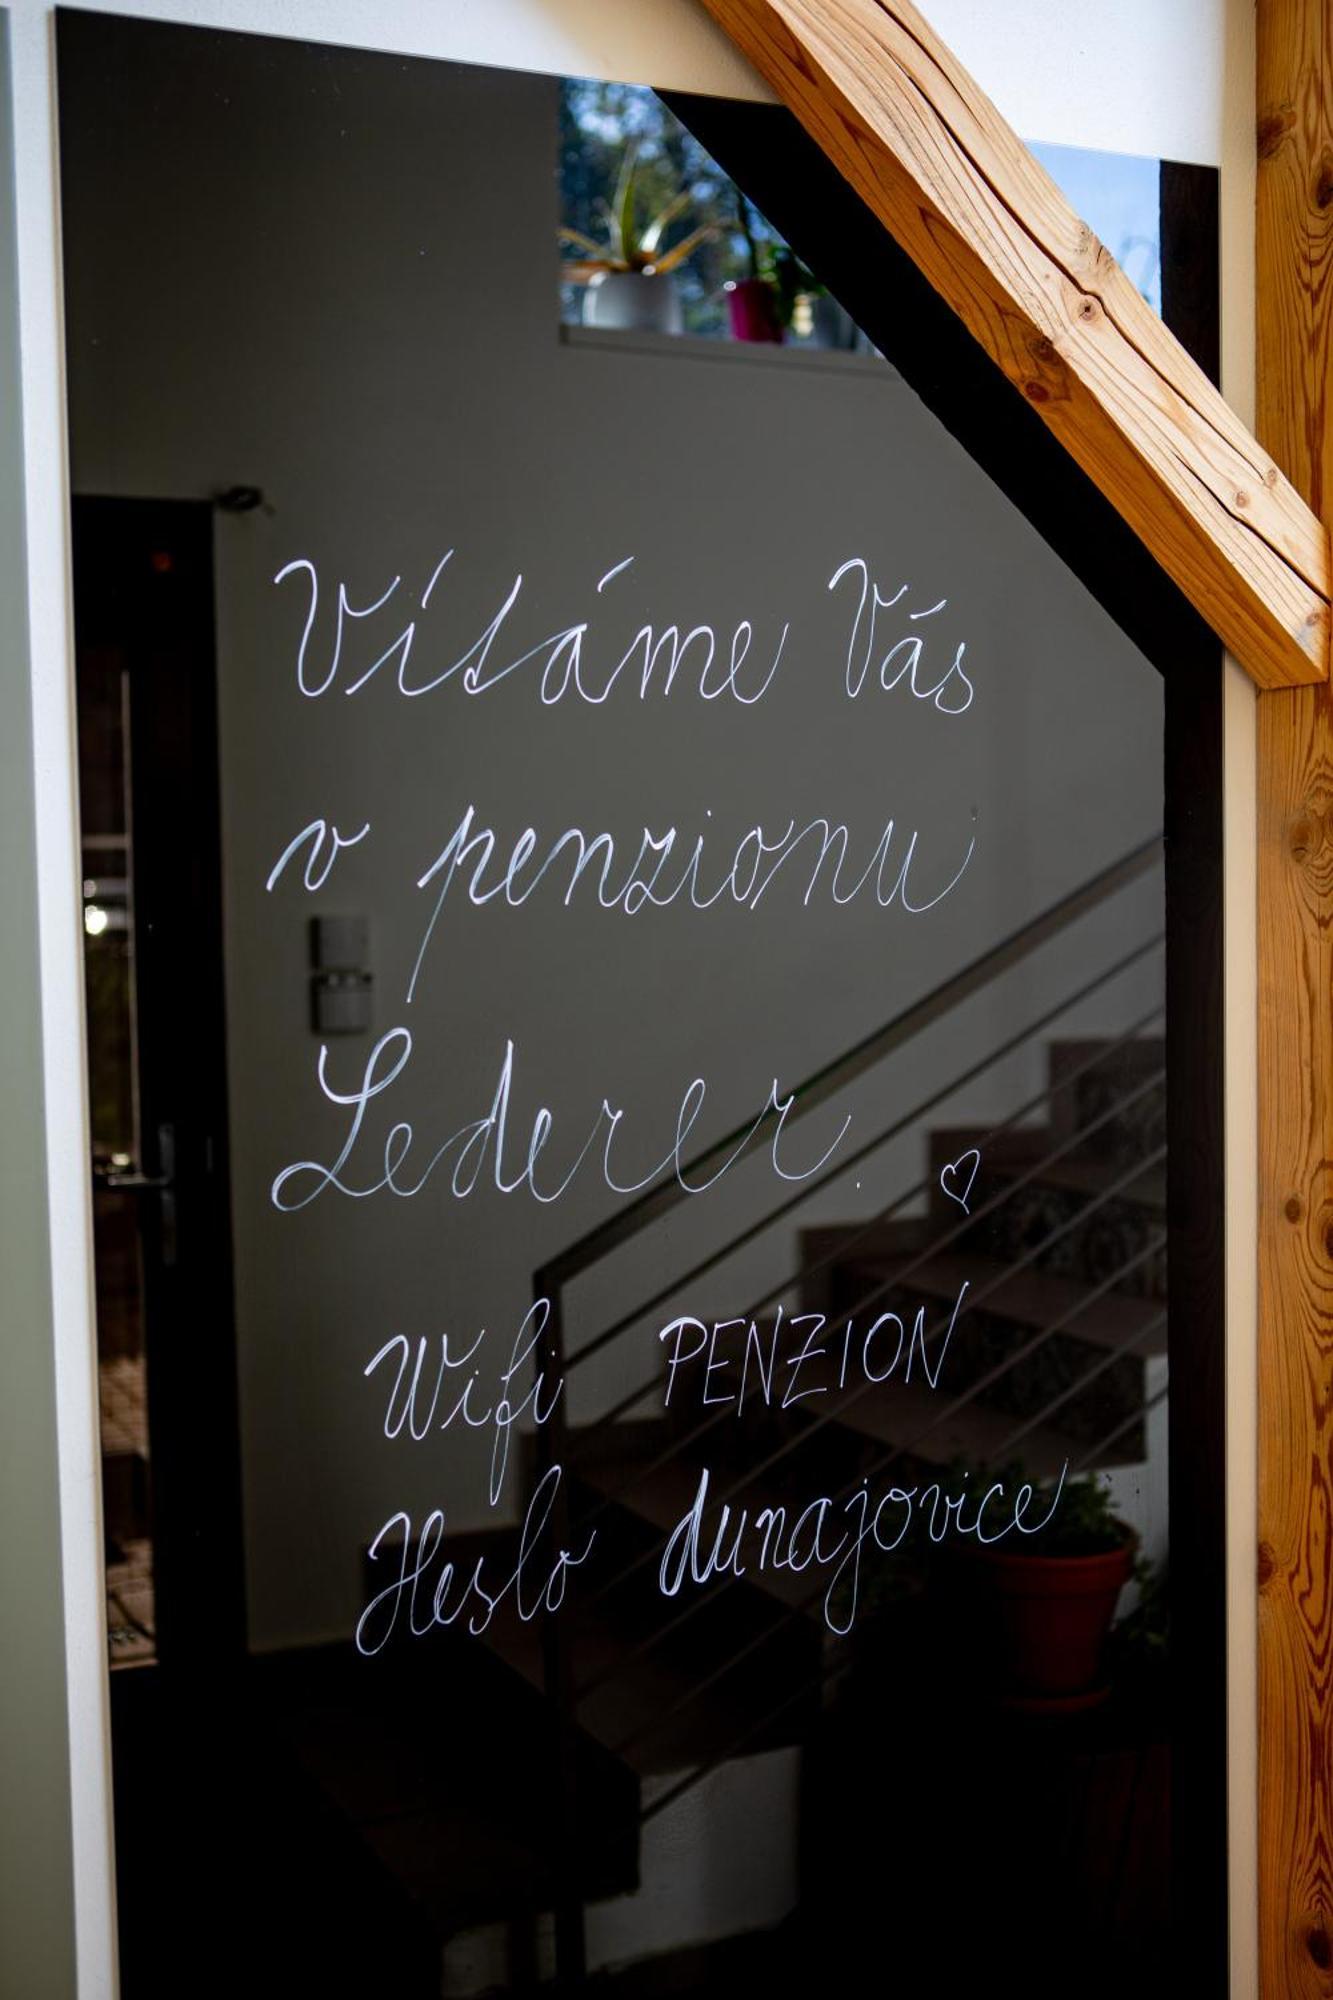 Vítáme Vás
v penzionu
Lederer.
Wifi PENZION
Heslo dunajovice